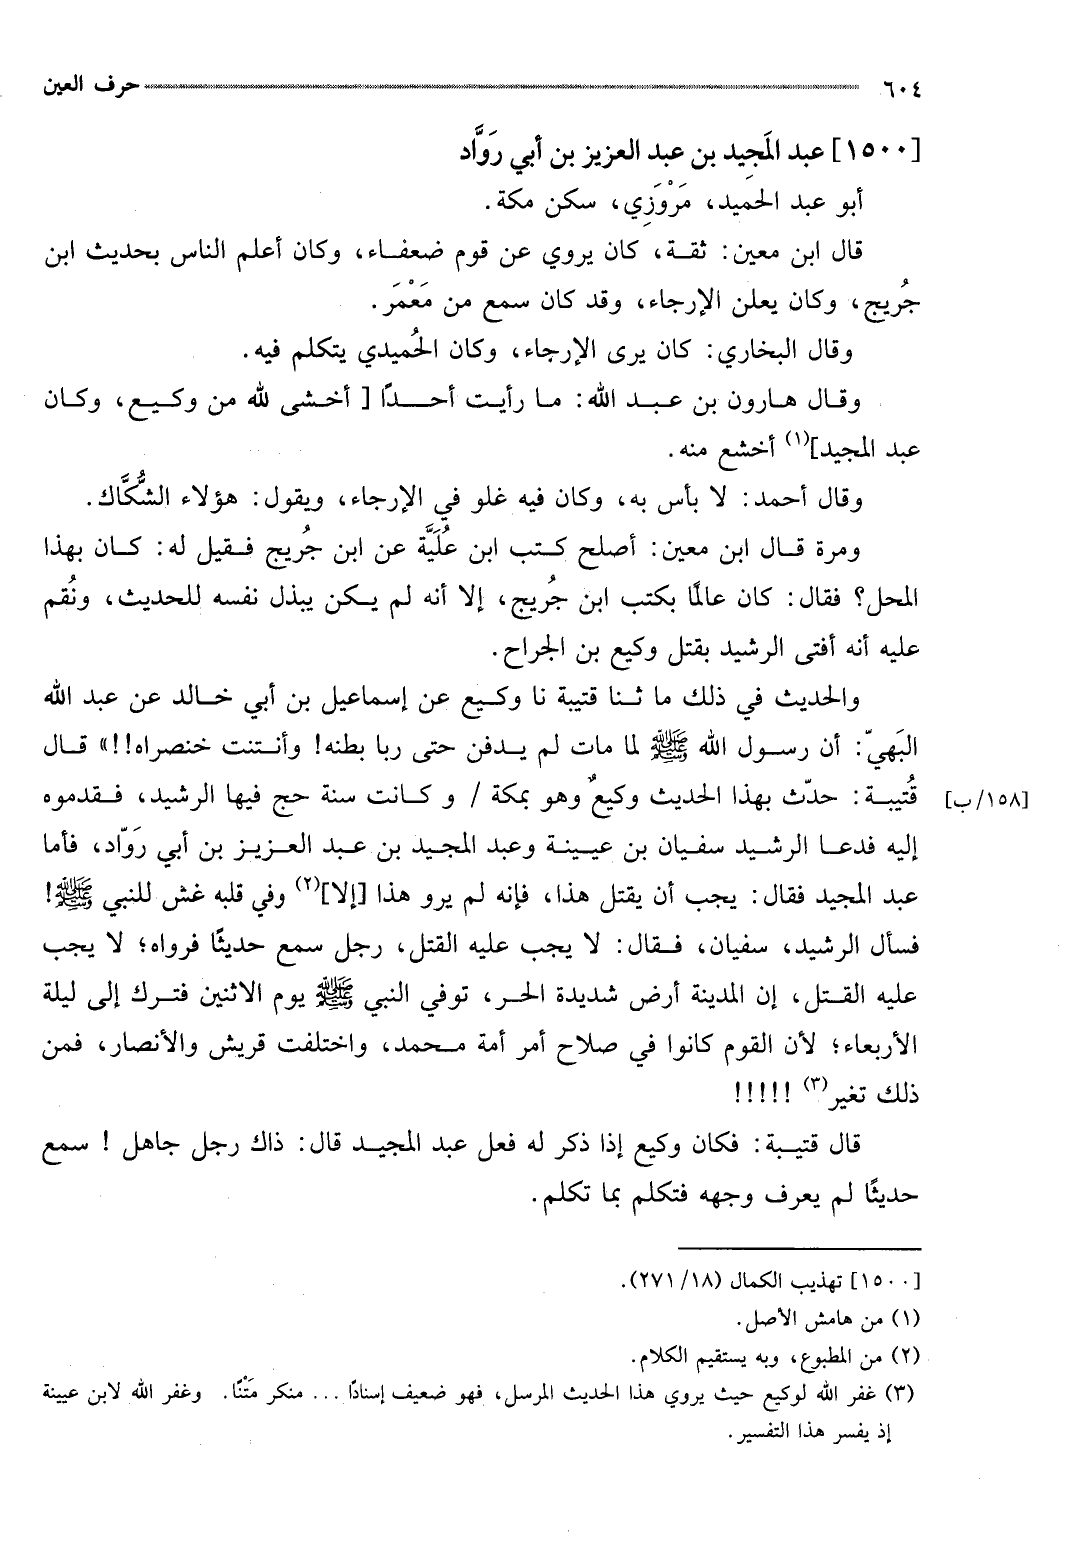 ٦٠٤ حرف العين
[١٥٠٠] عبد المَجِيد بن عبد العزيز بن أبي روَّاد
أبو عبد الحَمِيد، مَرْوَزِي، سكن مكة.
قال ابن معين: ثقة، كان يروي عن قوم ضعفاء، وكان أعلم الناس بحديث ابن
جُريج، وكان يعلن الإرجاء، وقد كان سمع من مَعْمَر.
وقال البخاري: كان يرى الإرجاء، وكان الحُميدي يتكلم فيه.
وقال هارون بن عبد الله: ما رأيت أحدًا [ أخشى لله من وكيع، وكان
عبد المجيد](١) أخشع منه.
وقال أحمد: لا بأس به، وكان فيه غلو في الإرجاء، ويقول: هؤلاء الشُّكَّاك.
ومرة قال ابن معين: أصلح كتب ابن عُلَيَّة عن ابن جُريج فقيل له: كان بهذا
المحل؟ فقال: كان عالمًا بكتب ابن جُريج، إلا أنه لم يكن يبذل نفسه للحديث، ونُقم
عليه أنه أفتى الرشيد بقتل وكيع بن الجراح.
والحديث في ذلك ما ثنا قتيبة نا وكيع عن إسماعيل بن أبي خالد عن عبد الله
البَهيّ: أن رسول الله ﷺ لما مات لم يدفن حتى ربا بطنه! وأنتنت خنصراه!!» قال
قُتيبة: حدّث بهذا الحديث وكيعٌ وهو بمكة / و كانت سنة حج فيها الرشيد، فقدموه [١٥٨/ب]
إليه فدعا الرشيد سفيان بن عيينة وعبد المجيد بن عبد العزيز بن أبي روّاد، فأما
عبد المجيد فقال: يجب أن يقتل هذا، فإنه لم يرو هذا [إلا](٢) وفي قلبه غش للنبي ﷺ!
فسأل الرشيد، سفيان، فقال: لا يجب عليه القتل، رجل سمع حديثًا فرواه؛ لا يجب
عليه القتل، إن المدينة أرض شديدة الحر، توفي النبي ﷺ يوم الاثنين فترك إلى ليلة
الأربعاء؛ لأن القوم كانوا في صلاح أمر أمة محمد، واختلفت قريش والأنصار، فمن
ذلك تغير(٣) !!!!!
قال قتيبة: فكان وكيع إذا ذكر له فعل عبد المجيد قال: ذاك رجل جاهل ! سمع
حديثًا لم يعرف وجهه فتكلم بما تكلم.
[١٥٠٠] تهذيب الكمال (١٨/ ٢٧١).
(١) من هامش الأصل.
(٢) من المطبوع، وبه يستقيم الكلام.
(٣) غفر الله لوكيع حيث يروي هذا الحديث المرسل، فهو ضعيف إسنادًا ... منكر متْنًا. وغفر الله لابن عيينة
إذ يفسر هذا التفسير.